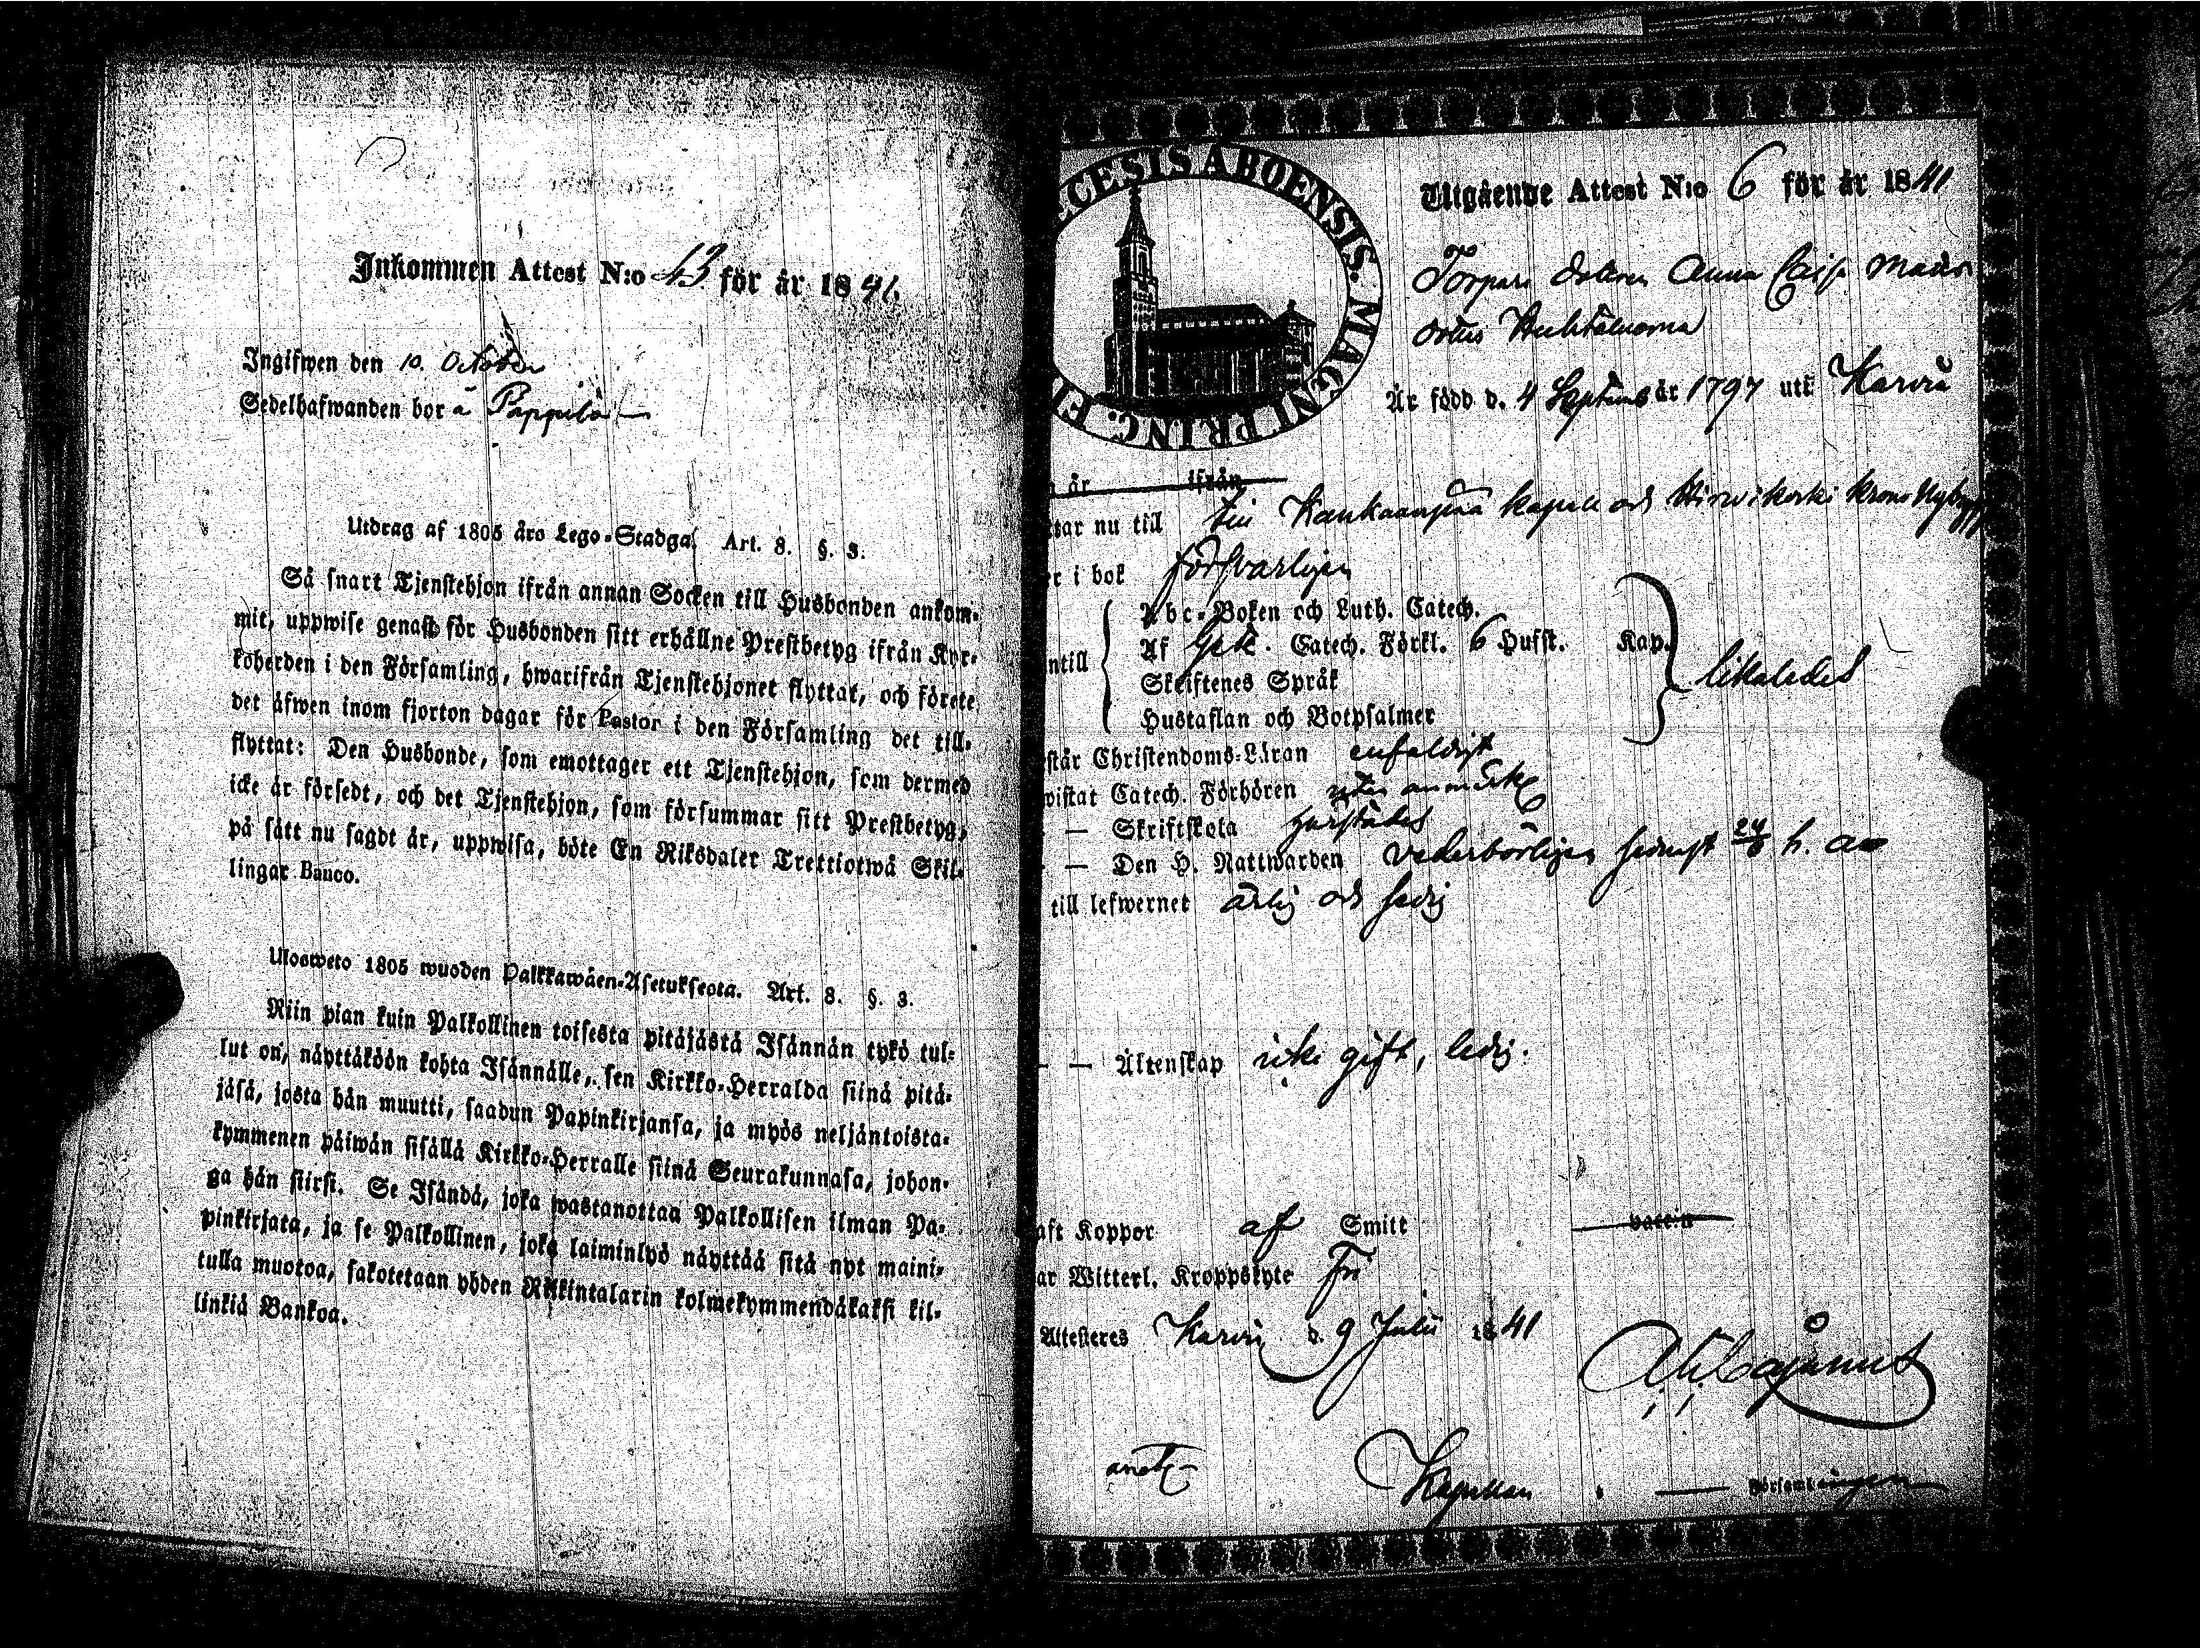 Inkommen Attest N:o 43 för år 1841.
Ingifwen den 10. October
Sedelhafwanden bor å Pappila
Utdrag af 1805 års Lego-Stadga. Art. 8. §. 3.
Så snart Tjenstehjon ifrån annan Socken till Husbonden ankom-
mit, uppwise genast för Husbonden sitt erhållne Prestbetyg ifrån Kyr-
koherden i den Församling, hwarifrån Tjenstehjonet flyttat, och förete
det äfwen inom fjorton dagar för Pastor i den Församling det till-
flyttat: Den Husbonde, som emottager ett Tjenstehjon, som dermed
icke är försedt, och det Tjenstehjon, som försummar sitt Prestbetyg,
på sätt nu sagdt är, uppwisa, böte En Riksdaler Trettiotwå Skil-
lingar Banco.
Ulosweto 1805 wuoden Palkkawäen-Asetuksesta. Art. 8. §. 3.
Niin pian kuin Palkollinen toisesta pitäjästä Isännän tykö tul-
lut on, näyttäköön kohta Isännälle, sen Kirkko-Herralda siinä pitä-
jäsä, josta hän muutti, saadun Papinkirjansa, ja myös neljäntoista-
kymmenen päiwän sisällä Kirkko-Herralle siinä Seurakunnasa, johon-
ga hän siirsi. Se Isändä, joka wastanottaa Palkollisen ilman Pa-
pinkirjata, ja se Palkollinen, joka laiminlyö näyttää sitä nyt maini-
tulla muotoa, sakotetaan yhden Riikintalarin kolmekymmendäkaksi kil-
linkiä Bankoa.
CESIS ABOENSIS. MAGNI PRINC. FI
Utgående Attest N:o 6 för år 1841
Torpare dotteren Anna Caisa Mads
dotter
Är född d. 4 Septemb år 1797 uti Karvia
år ifrån
tar nu till Kankaanpää kapell och Hirvikoski krono Nybygge
er i bok försvarligen
ntill Abc-Boken och Luth. Catech.
Af Catech. Förkl. 6 Hufst. Kap. likaledes
Skriftenes Språk
Hustaflan och Botpsalmer
står Christendoms-Läran enfaldigt
wistat Catech. Förhören utan anmärkn
— Skriftskola
— — Den H. Nattwarden vederbörligen senast 24/6 h. a.
till lefwernet ärlig och sedig
— — Äktenskap icke gift, ledig.
aft Koppor af Smitt vaccin
ar Witterl. Kroppslyte Fri
Attesteres Karvia d. 9 Julii 1841
Cajanus
Kapellan — Församlingen